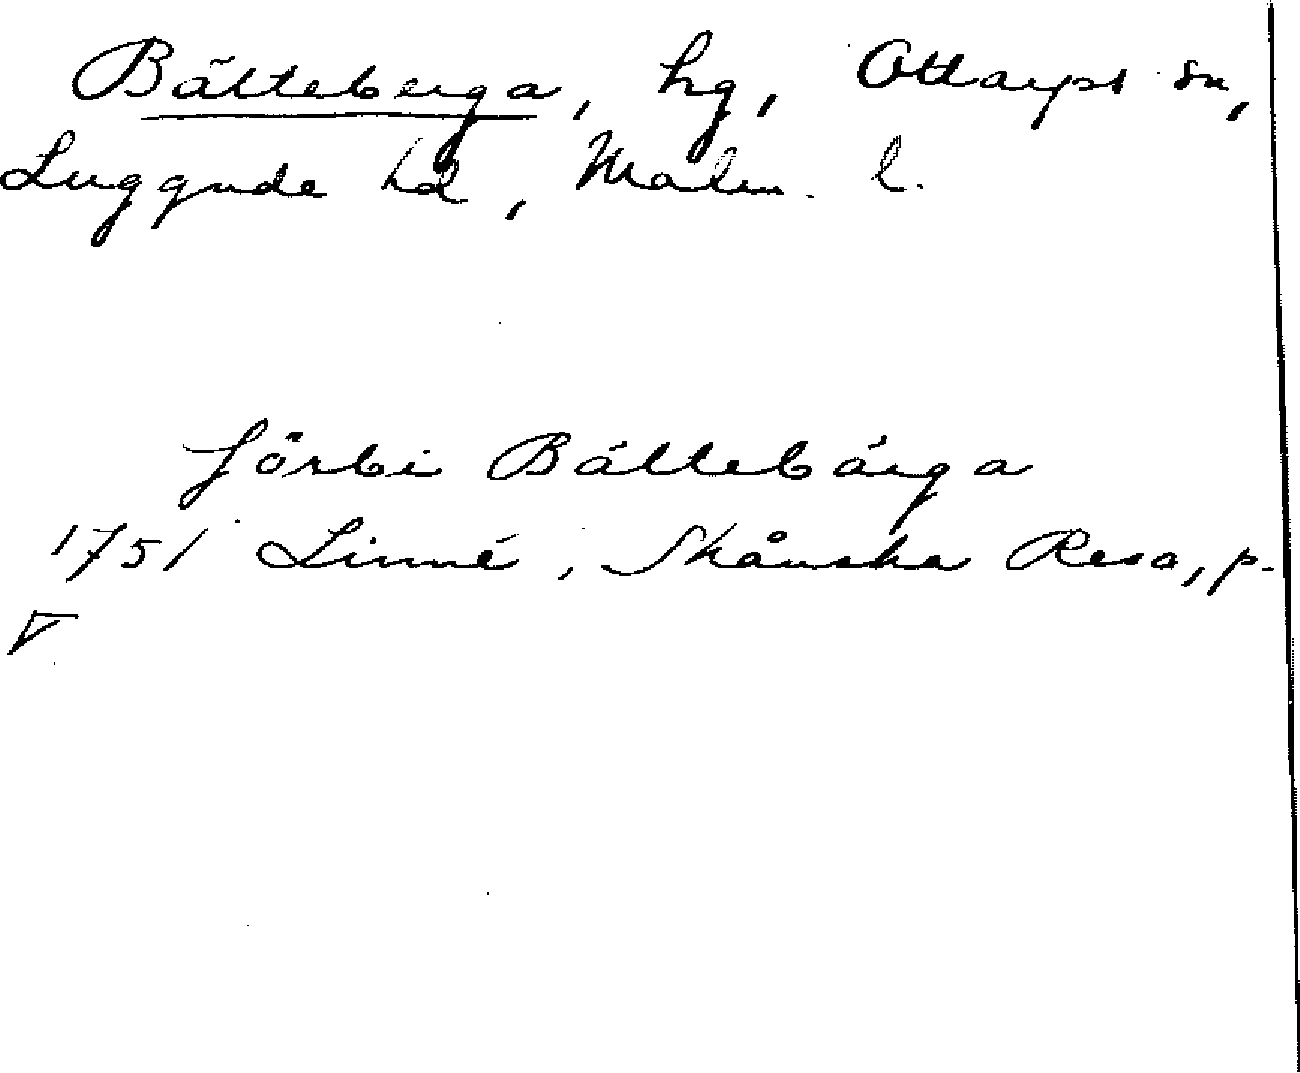 Bälteberga, hg, Ottarps sn,
Luggude hd, Malm. l.
förbi Bältebärga
1751 Linné, Skånska Resa, p.
V